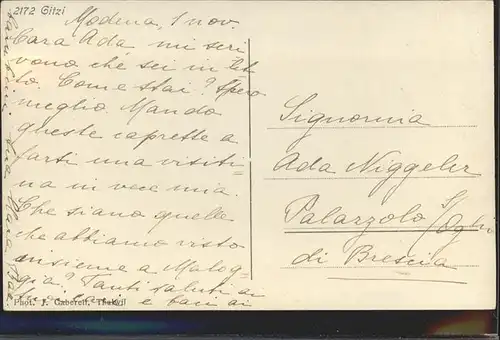 2172 Gitzi
Modena, 1 nov.
Cara Ada, mi scri
vono che sei in let
to. Come stai? Spero
meglio. Mando
queste caprette a
farti una visiti=
na in vece mia.
Che siano quelle
che abbiamo visto
insieme a Malog=
gia? Tanti saluti ai
e baci ai
Phot. J. Gaberell, Thalwil
Signorina
Ada Niggeler
Palazzolo s/Oglio
di Brescia